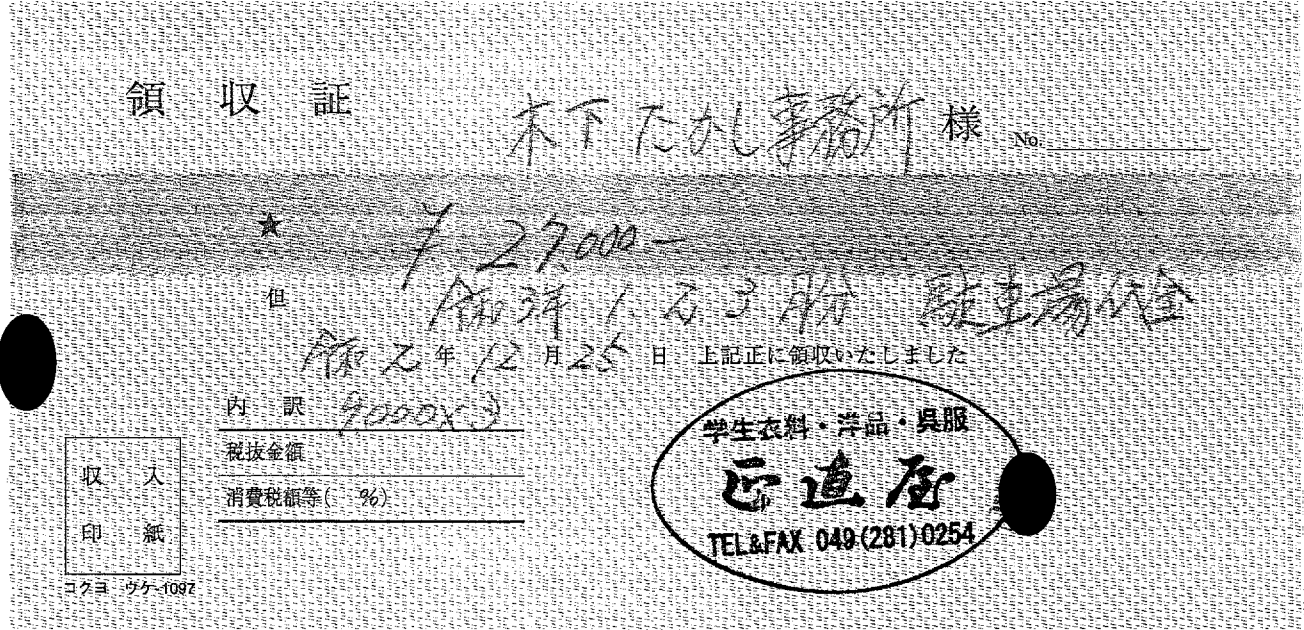 領収証
木下たかし事務所 様 No.
★ ¥27,000-
但 令和3年1.2.3月分 駐車場代金
令和元年12月25日 上記正に領収いたしました
内訳 9000×3
税抜金額
消費税額等( %)
収入
印紙
コクヨ ウケ-1097
学生衣料・洋品・呉服
正直屋
TEL&FAX 049(281)0254